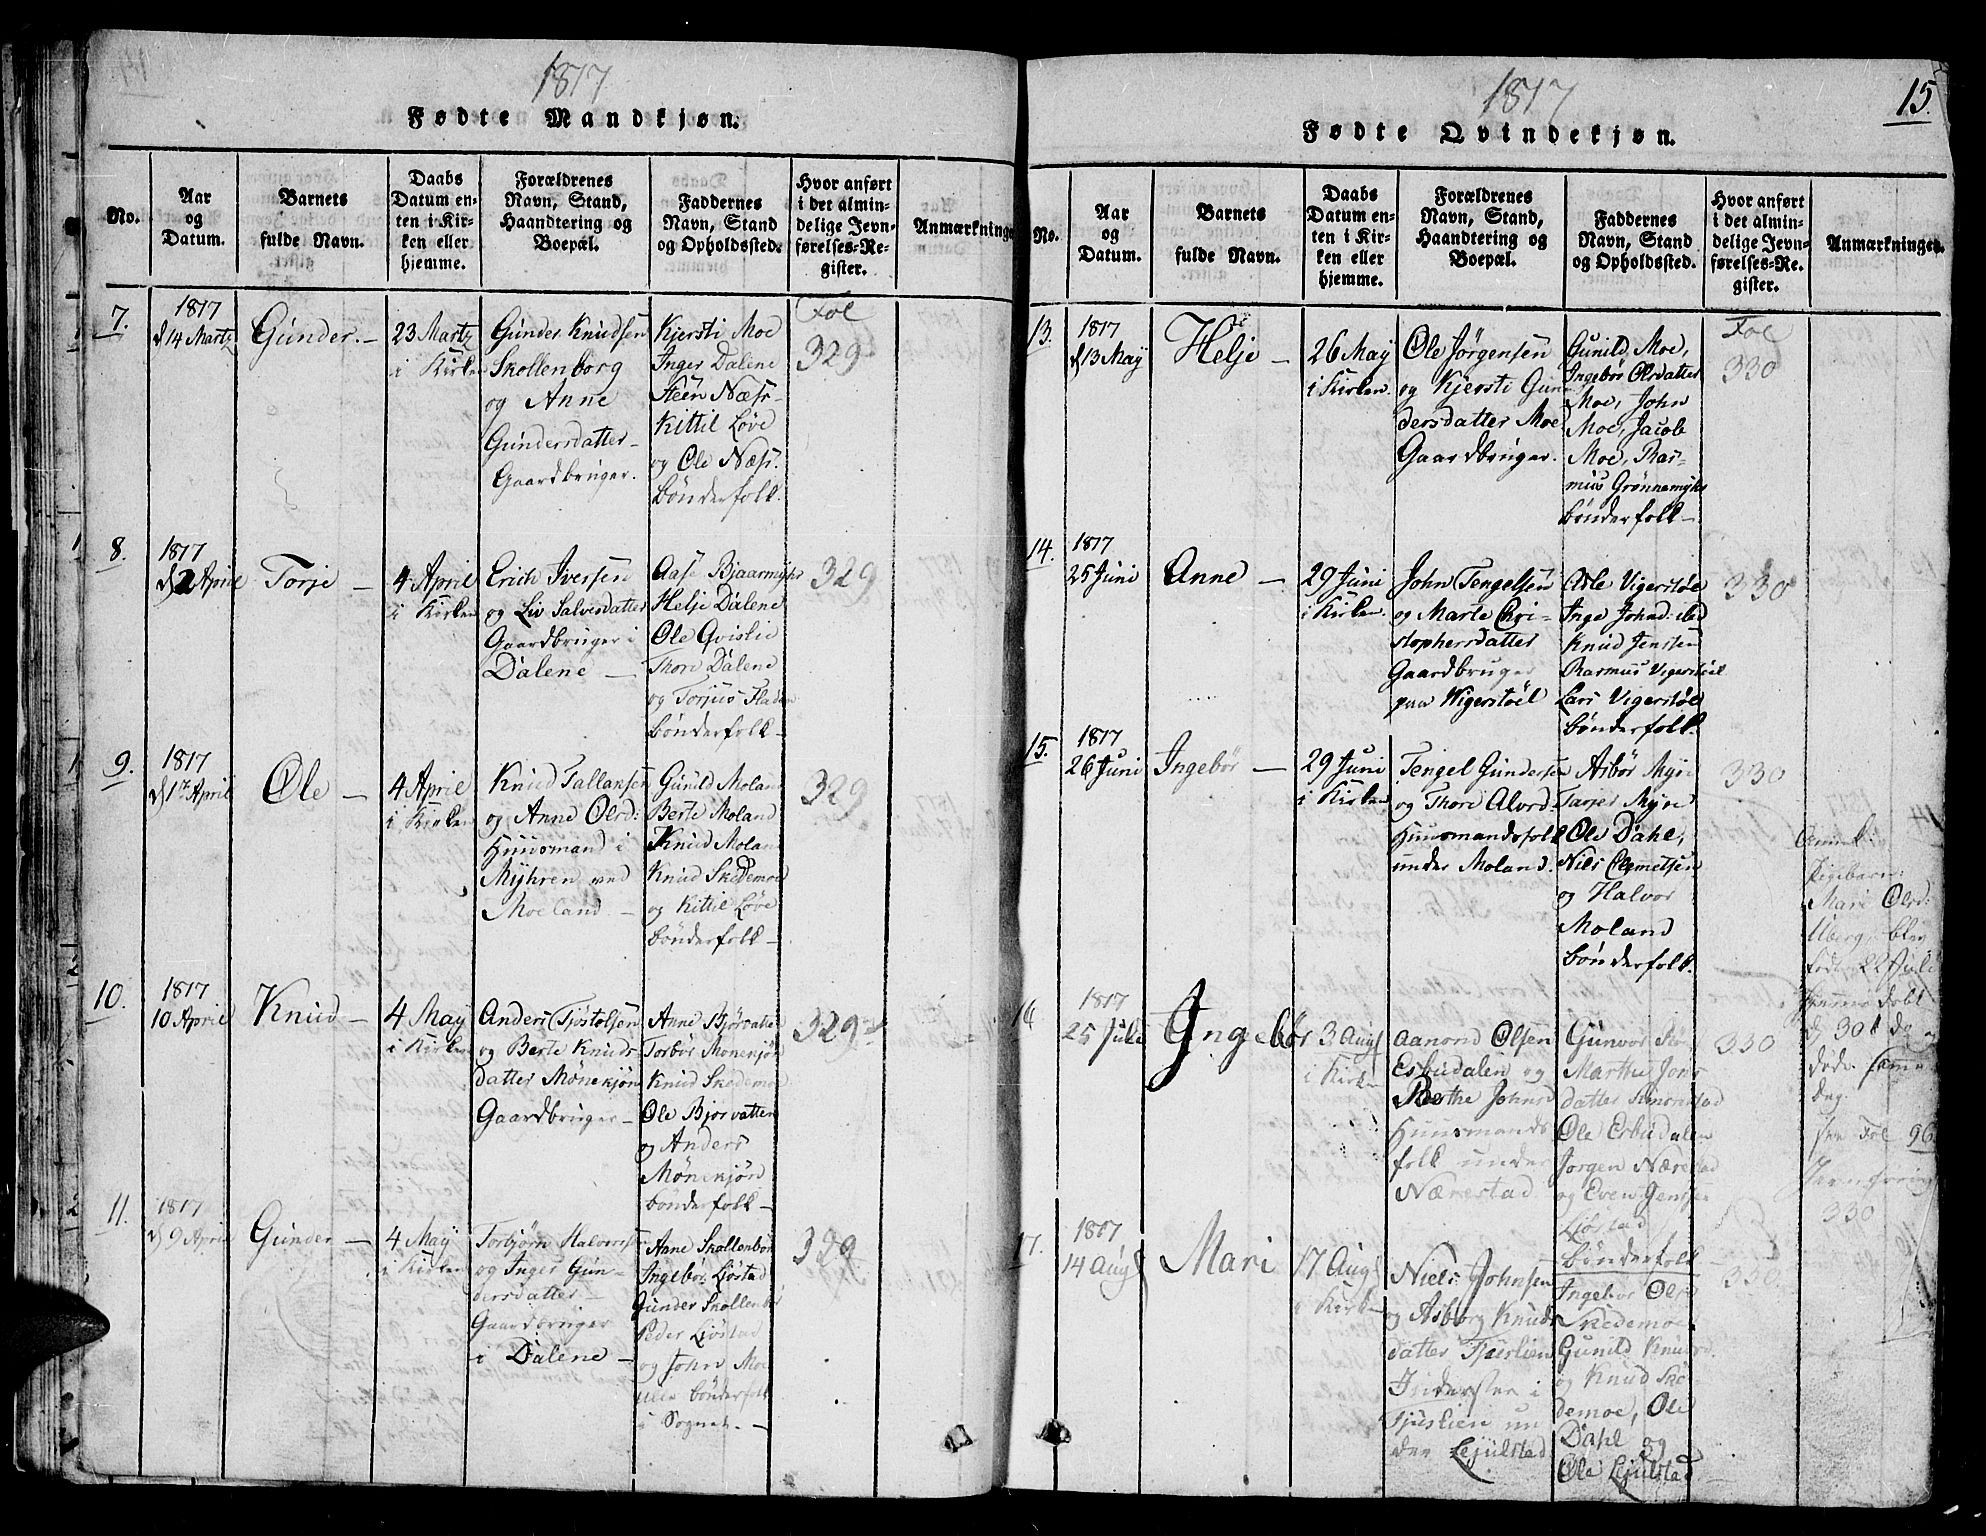 1817
Fødte Mandkjøn.
No.
Aar
og
Datum.
Barnets
fulde Navn.
Daabs
Datum en-
ten i Kir-
ken eller
hjemme.
Forældrenes
Navn, Stand,
Haandtering og
Boepæl.
Faddernes
Navn, Stand
og Opholdssted.
Hvor anført
i det almin-
delige Jevn-
førelses-Re-
gister.
Anmærkninger
7.
1817
d 14 Martz
Gunder. –
23 Martz
i Kirken
Gunder Knudsen
Skollenborg
og Anne
Gundersdatter –
Gaardbruger.
Kjersti Moe
Inger Dalene
Steen Næss
Kittil Løve
og Ole Næss.
bønderfolk.
Fol
329
8.
1817
d 2 April
Torje –
4 April
i Kirken
Erich Iversen
og Liv Salvesdatter
Gaardbruger i
Dalene –
Aase Bjaarmyhr
Helje Dalene
Ole Qvislie
Thore Dalene
og Torjus Fladen
bønderfolk –
329
9.
1817
d 1 April
Ole –
4 April
i Kirken
Knud Tallansen
og Anne Olsd:
Huusmand i
Myhren ved
Moeland –
Gunild Moland
Berte Moland
Knud Moland
Knud Skedemoe
og Kittil Løve
bønderfolk –
329
10.
1817
10 April
Knud –
4 May
i Kirken
Anders Tjostolsen
og Berte Knuds-
datter Mønekjøn
Gaardbruger –
Anne Bjorvatten
Torbør Monekjøn
Knud Skedemoe
Ole Bjorvatten
og Anders
Mønekjøn
bønderfolk –
329
11.
1817
d 9 April
Gunder –
4 May
i Kirken
Torbjørn Halvors:
og Inger Gun-
dersdatter –
Gaardbruger
i Dalene –
Anne Skollenbor
Ingebør Ljøstad
Gunder Skollenbor
Peder Ljøstad
og John Moe
alle bønderfolk
i Sognet. –
329
1817
15.
Fødte Qvindekjøn.
No.
Aar
og
Datum.
Barnets
fulde Navn.
Daabs
Datum en-
ten i Kir-
ken eller
hjemme.
Forældrenes
Navn, Stand,
Haandtering og
Boepæl.
Faddernes
Navn, Stand
og Opholdssted.
Hvor anført
i det almin-
delige Jevn-
førelses-Re-
gister.
Anmærkninger.
13.
1817
d 13 May
Helje –
26 May
i Kirken
Ole Jørgensen
og Kjersti Gun
dersdatter Moe
Gaardbruger.
Gunild Moe,
Ingebør Olsdatter
Moe, John
Moe, Jacob
Moe, Ras-
mus Grønnemyhr
bønderfolk –
Fol
330
14.
1817
25 Juni
Anne –
29 Juni
i Kirken
John Tengelsen
og Marte Chri-
stophersdatter
Gaardbruger
paa Wigerstøel
Asle Vigerstøl
Inge Johnd: ibd
Knud Jensen
Rasmus Vigerstøel
Lars Vigerstøl
bønderfolk.
330
15.
1817
26 Juni
Ingebør –
29 Juni
i Kirken
Tengel Gundersen
og Thore Alvord.
Huusmandsfolk
under Moland.
Asbør Myre
Tarjer Myre
Ole Dahl,
Niels Clemetsen
og Halvor
Moland
bønderfolk.
330
16
1817
25 Juli
Ingebør
3 Aug
i Kirken
Aanond Olsen
Esbudalen og
Berthe Johnsd
Huusmands
folk under
Nærestad
Gunvor
Marthe Jons
datter Smorestad
Ole Esbudalen
Jorgen Nærestad
og Even Jensen
Ljøstad
bønderfolk
330
Pigebarn:
Mari Olsd:
Uberg, blev
født 22 Juli
hjemme døbt
d 30 t Do
døde samme
dag.
see Fol 96
Jevnføring
330
17.
1817
14 Aug
Mari
17 Aug
i Kirken
Niels Johnsen
og Asborg Knuds
datter Tjuslien
Inderster i
Tjuslien un
der Lejulstad
Ingebør Olsd
Skedemoe
Gunild Knudsd.
og Knud Ske
demoe, Ole
Dahl
Ole Lejulstad
39
330